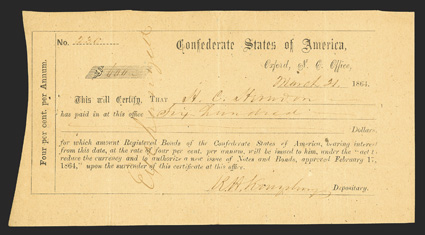 No.
Confederate States of America,
Oxford, N. C. Office,
March 21. 1864.
$ 600
This will Certify, THAT H. C.
has paid in at this office Six hundred
Dollars,
for which amount Registered Bonds of the Confederate States of America, bearing interest
from this date, at the rate of four per cent. per annum, will be issued to him, under the "act t
reduce the currency and to authorize a new issue of Notes and Bonds, approved February 17,
1864," upon the surrender of this certificate at this office.
Depositary.
Four per cent. per Annum.